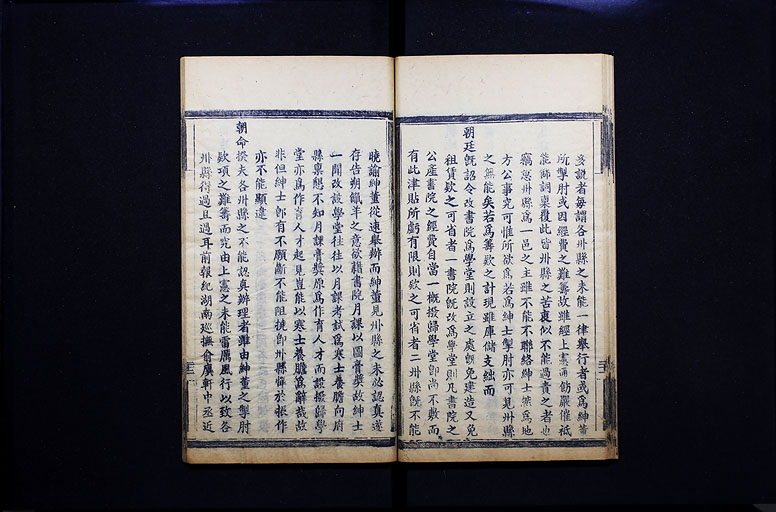 多說者每謂各州縣之未能一律舉行者或爲紳董
所掣肘或因經費之難籌故雖經上憲通飭嚴催祗
能飾詞稟覆此皆州縣之苦衷似不能過責之者也
竊思州縣爲一邑之主雖不能不聯絡紳士然爲地
方公事究可惟所欲爲若爲紳士掣肘亦可見州縣
之無能矣若爲籌欵之計現雖庫儲支絀而
朝廷旣詔令改書院爲學堂則設立之處旣免建造又免
租賃欵之可省者一書院旣改爲學堂則凡書院之
公產書院之經費自當一概撥歸學堂卽尚不敷而
有此津貼所虧有限則欵之可省者二州縣旣不能
曉諭紳董從速舉辦而紳董見州縣之未必認真遂
存告朔餼羊之意欲藉書院月課以圖膏獎故紳士
一聞改設學堂往往以月課考試爲寒士養贍向府
縣稟懇不知月課膏獎原爲作育人才而設撥歸學
堂亦爲作育人才起見豈能以寒士養贍爲辭哉故
非但紳士卽有不願斷不能阻撓卽州縣憚於振作
亦不能顯違
朝命揆夫各州縣之不能認真辦理者雖由紳董之掣肘
欵項之難籌而究由上憲之未能雷厲風行以致各
州縣得過且過耳前報紀湖南巡撫俞廙軒中丞近